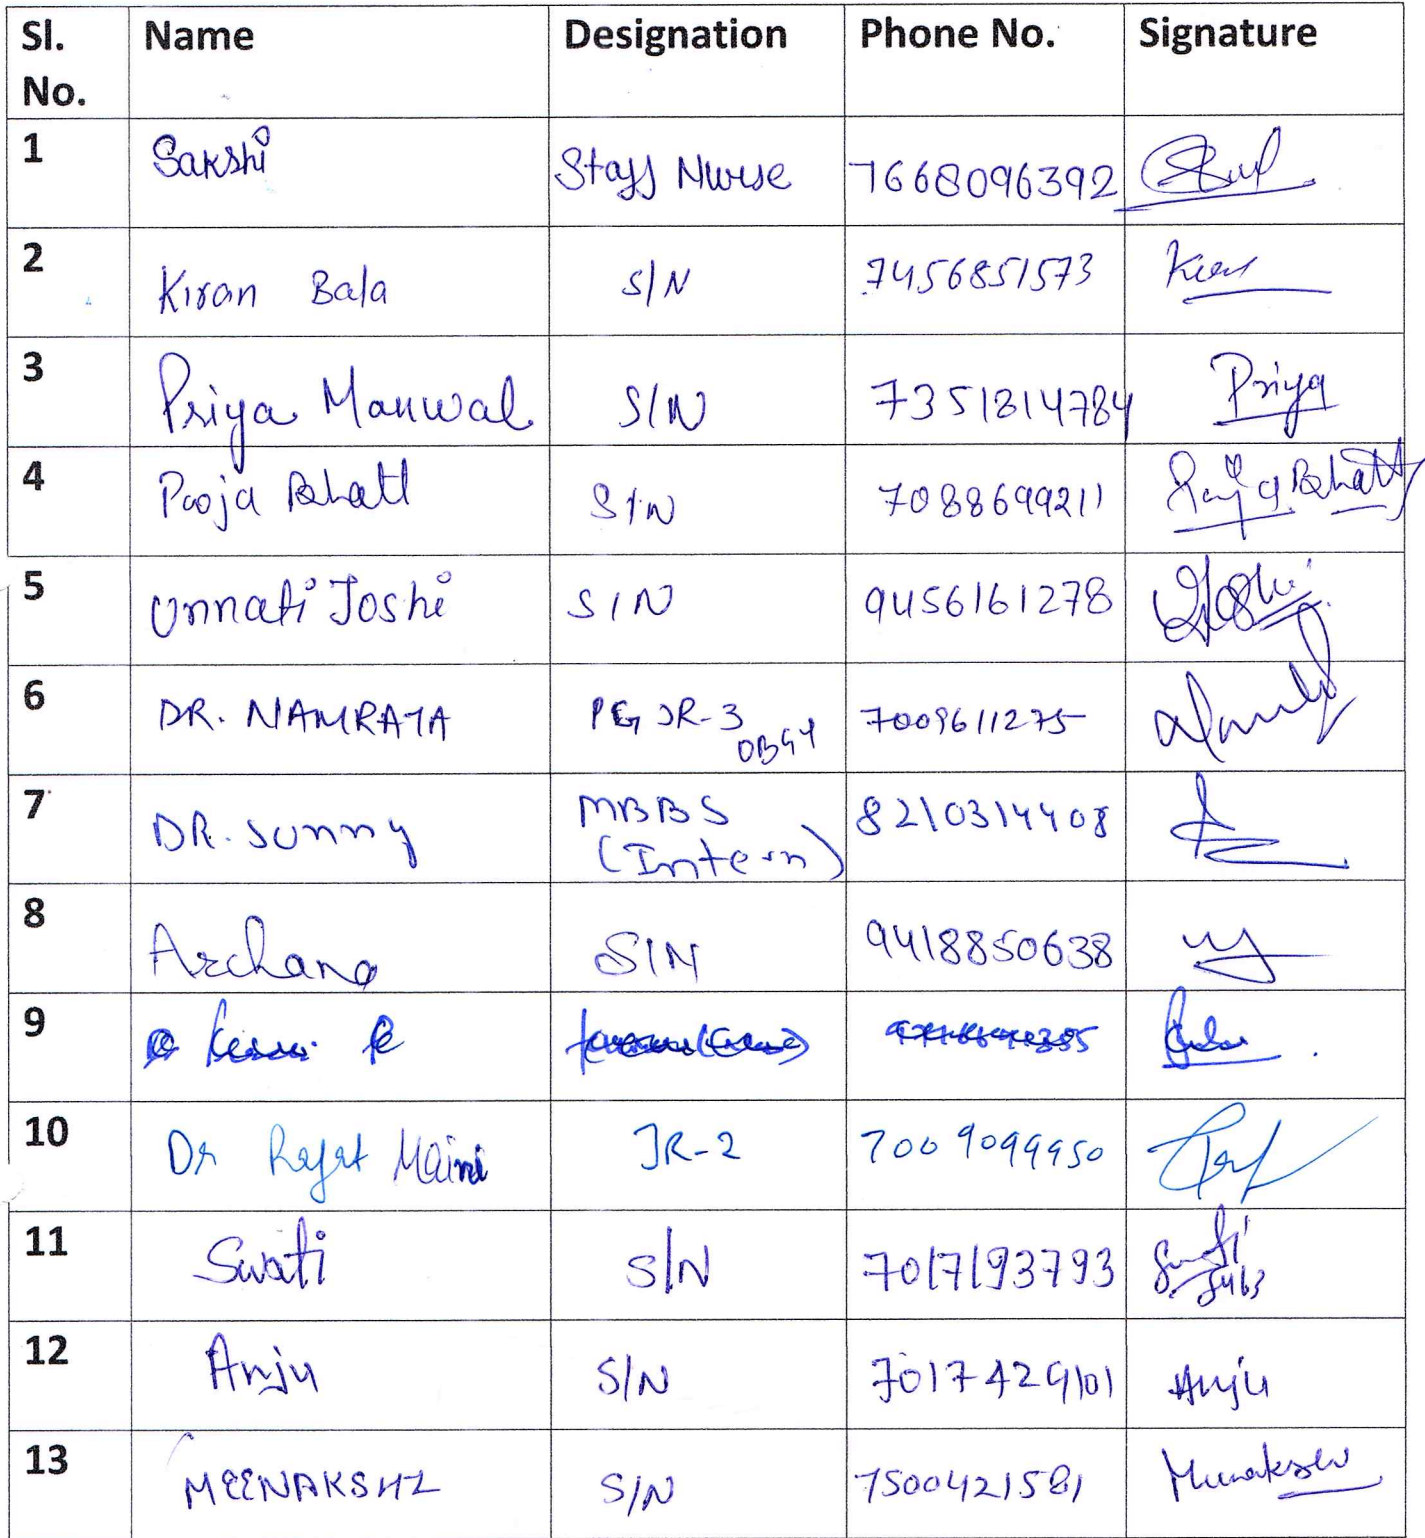 Sl. No. Name Designation Phone No. Signature
1 Sakshi Staff Nurse 7668096392
2 Kiran Bala S/N 7456851573 Kiran
3 Priya Manwal S/N 7351214784 Priya
4 Pooja Bhatt S/N 7088699211 Pooja Bhatt
5 Unnati Joshi S/N 9456161278 Joshi
6 DR. NAMRATA PG JR-3 OBGY 7009611275
7 DR. Sunny MBBS (Intern) 8210314408
8 Archana S/N 9418850638
9
10 Dr Rajat Maini JR-2 7009099950
11 Swati S/N 7017193793 Swati
12 Anju S/N 7017429101 Anju
13 MEENAKSHI S/N 7500421581 Meenakshi